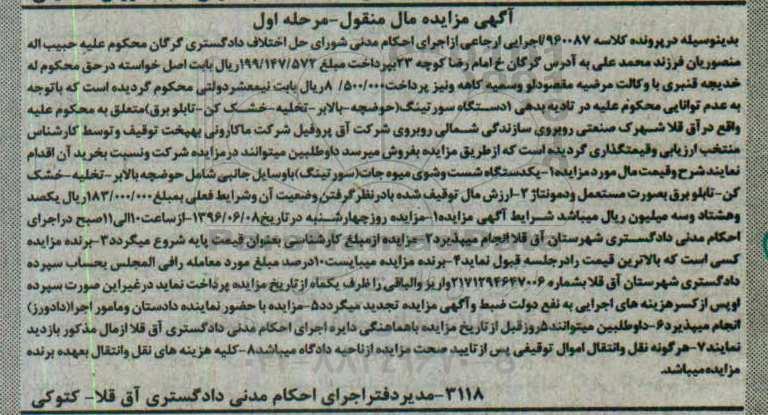 آگهی مزایده مال منقول-مرحله اول
بدینوسیله درپرونده کلاسه ۹۶۰۰۸۷/اجرایی ارجاعی ازاجرای احکام مدنی شورای حل اختلاف دادگستری گرگان محکوم علیه حبیب اله
منصوریان فرزند محمد علی به آدرس گرگان خ امام رضا کوچه ۲۳بپرداخت مبلغ ۱۹۹/۱۴۷/۵۷۲ریال بابت اصل خواسته درحق محکوم له
خدیجه قنبری با وکالت مرضیه مقصودلو وسمیه کاهه ونیز پرداخت۸/۵۰۰/۰۰۰ ریال بابت نیمعشردولتی محکوم گردیده است که باتوجه
به عدم توانایی محکوم علیه در تادیه بدهی ۱دستگاه سورتینگ(حوضچه-بالابر-تخلیه-خشک کن-تابلو برق)متعلق به محکوم علیه
واقع درآق قلا شهرک صنعتی روبروی سازندگی شمالی روبروی شرکت آق پروفیل شرکت ماکارونی بهپخت توقیف و توسط کارشناس
منتخب ارزیابی وقیمتگذاری گردیده است که ازطریق مزایده بفروش میرسد داوطلبین میتوانند درمزایده شرکت ونسبت بخرید آن اقدام
نمایند شرح وقیمت مال مورد مزایده۱-یکدستگاه شست وشوی میوه جات(سورتینگ)باوسایل جانبی شامل حوضچه بالابر-تخلیه-خشک
کن-تابلو برق بصورت مستعمل ودمونتاژ ۲-ارزش مال توقیف شده بادرنظرگرفتن وضعیت آن وشرایط فعلی بمبلغ۱۸۳/۰۰۰/۰۰۰ریال یکصد
وهشتاد وسه میلیون ریال میباشد شرایط آگهی مزایده۱-مزایده روزچهارشنبه در تاریخ۱۳۹۶/۰۶/۰۸-ازساعت۱۰الی۱۱صبح دراجرای
احکام مدنی دادگستری شهرستان آق قلا انجام میپذیرد۲-مزایده ازمبلغ کارشناسی بعنوان قیمت پایه شروع میگردد۳-برنده مزایده
کسی است که بالاترین قیمت رادرجلسه قبول نماید۴-برنده مزایده میبایست۱۰درصد مبلغ مورد معامله رافی المجلس بحساب سپرده
دادگستری شهرستان آق قلا بشماره ۲۱۷۱۲۹۴۶۴۷۰۰۶واریز والباقی را ظرف یکماه ازتاریخ مزایده پرداخت نماید درغیراین صورت سپرده
اوپس ازکسرهزینه های اجرایی به نفع دولت ضبط وآگهی مزایده تجدید میگردد۵-مزایده با حضور نماینده دادستان ومامور اجرا(دادورز)
انجام میپذیرد۶-داوطلبین میتوانند۵روزقبل ازتاریخ مزایده باهماهنگی دایره اجرای احکام مدنی دادگستری آق قلا ازمال مذکور بازدید
نمایند۷-هرگونه نقل وانتقال اموال توقیفی پس ازتایید صحت مزایده ازناحیه دادگاه میباشد۸-کلیه هزینه های نقل وانتقال بعهده برنده
مزایده میباشد.
۳۱۱۸-مدیردفتراجرای احکام مدنی دادگستری آق قلا- کتوکی